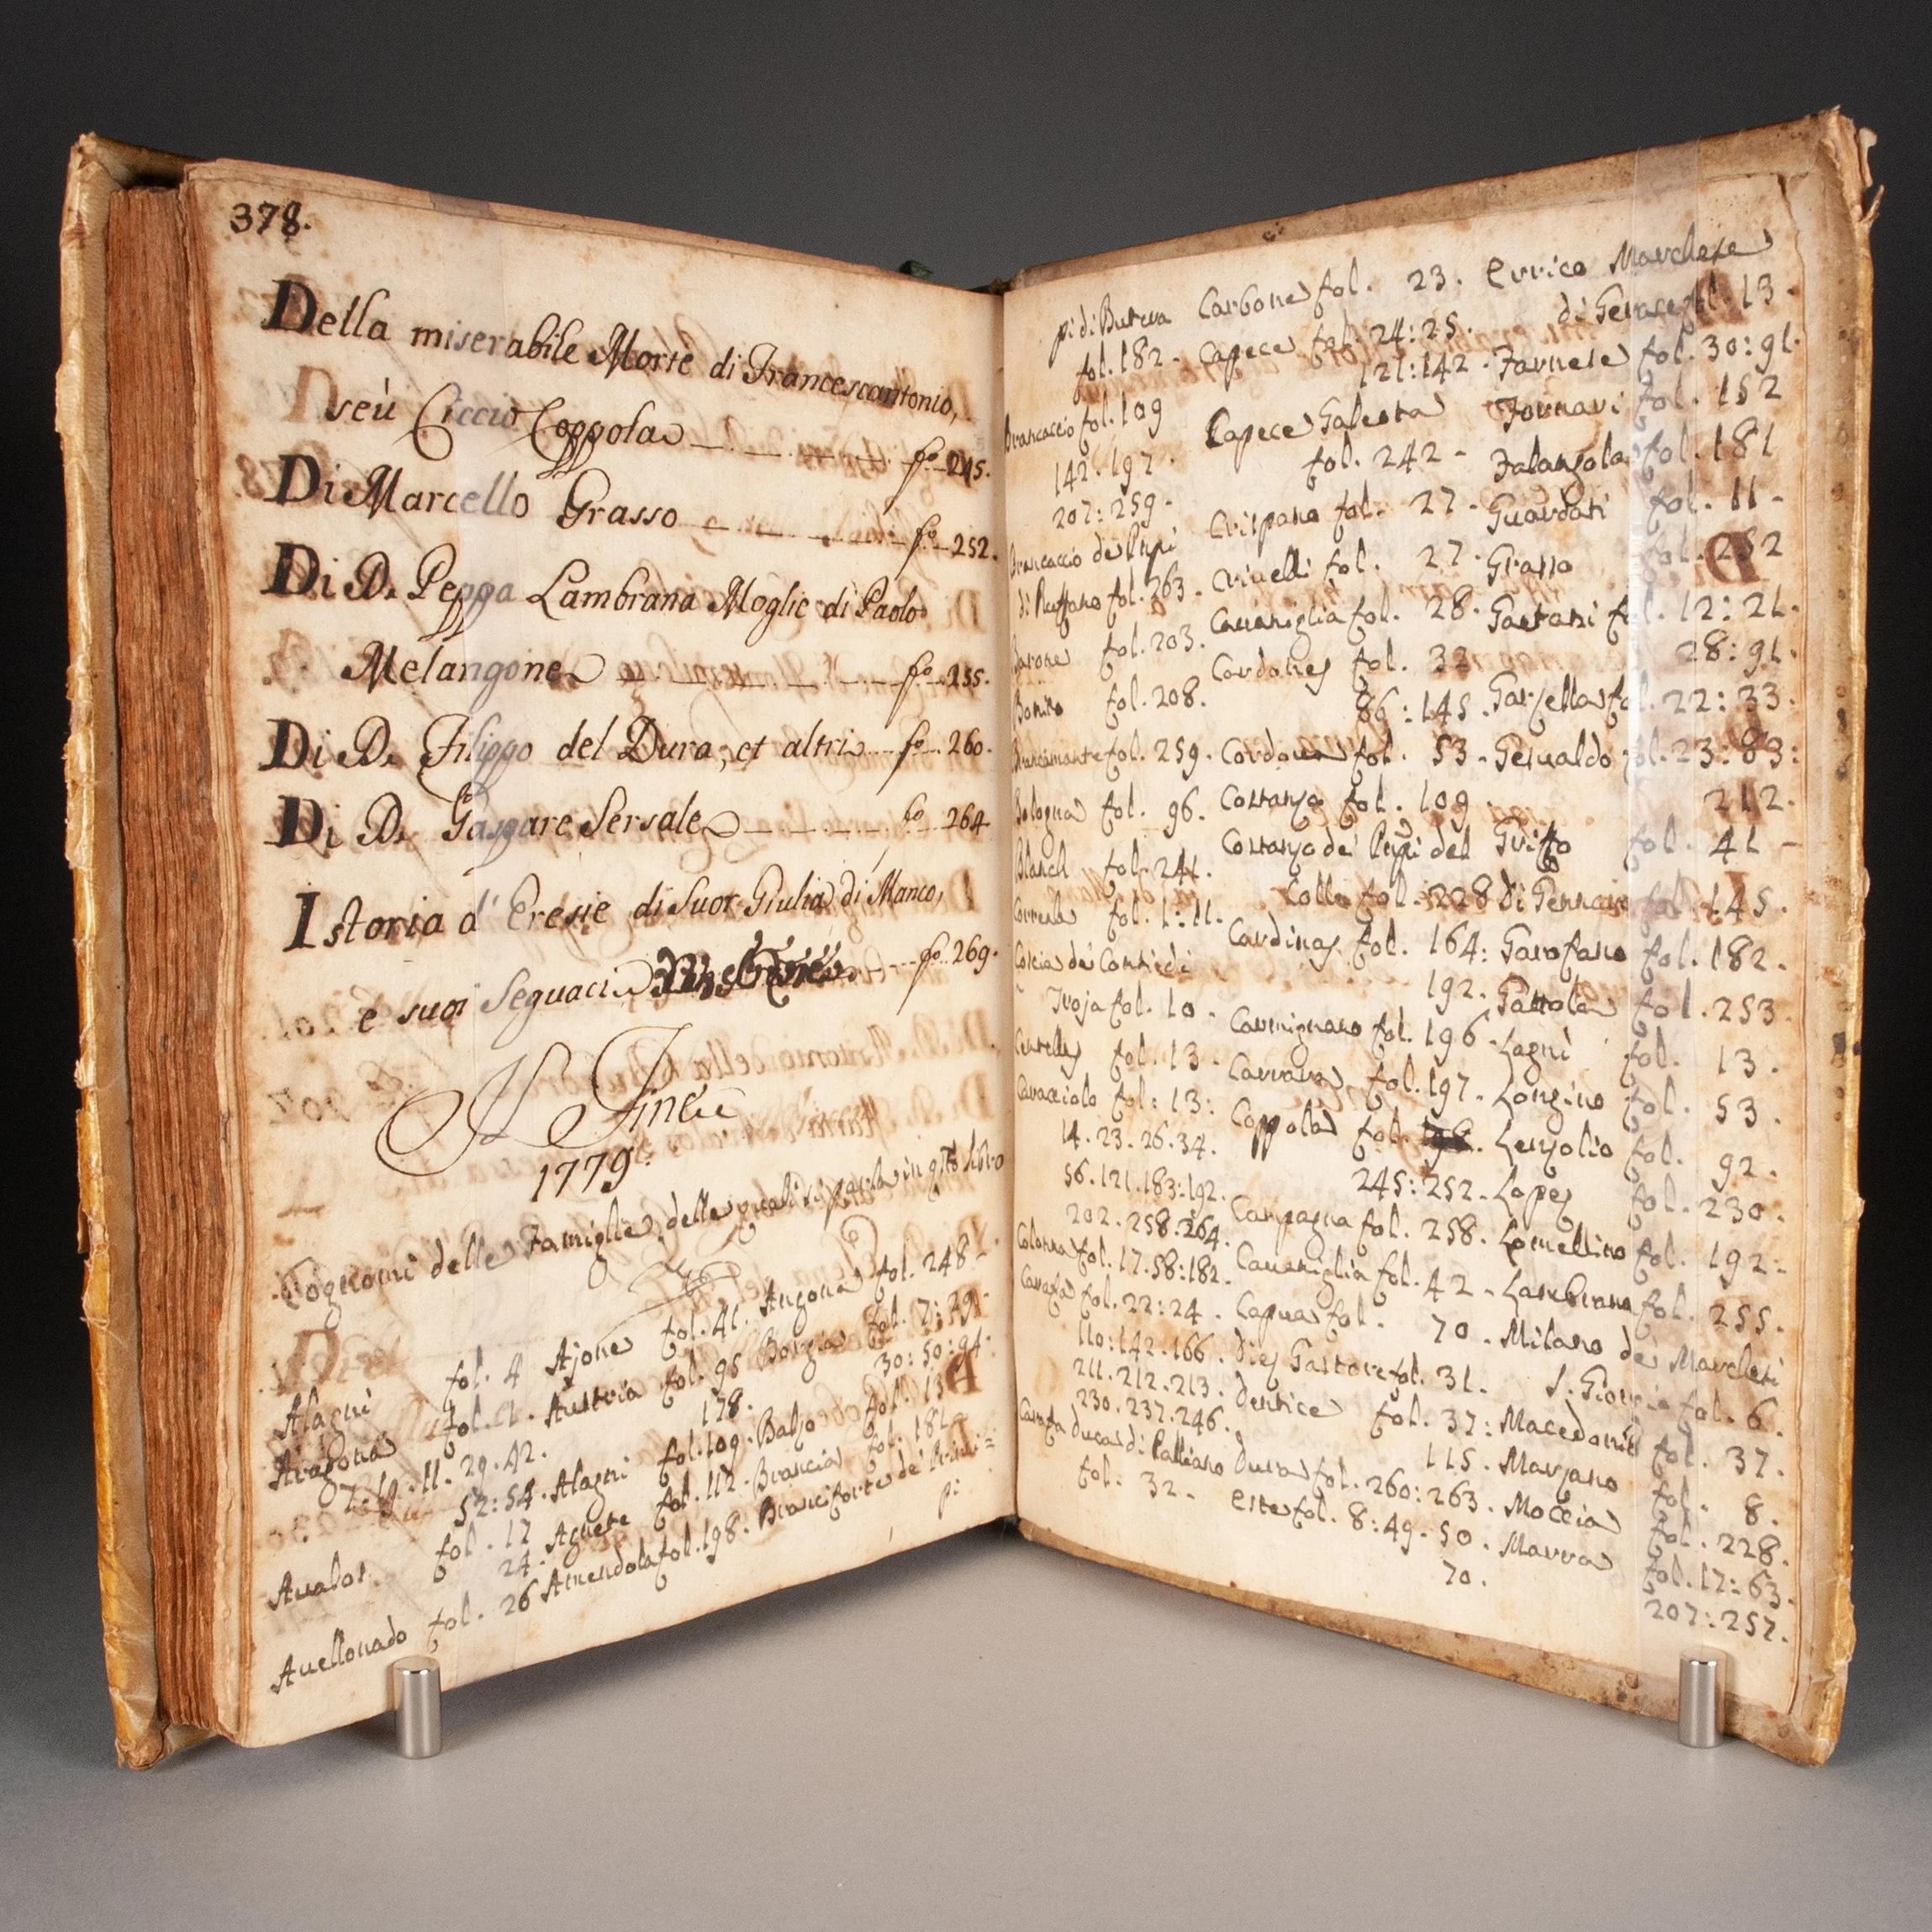 378.
Della miserabile Morte di Francescantonio,
seù Ciccio Coppola fo. 245.
Di Marcello Grasso fo. 252.
Di D. Peppa Lambrana Moglie di Paolo
Melangone fo. 255.
Di D. Filippo del Dura, et altri fo. 260.
Di D. Gaspare Sersale fo. 264
Istoria d' Eresie di Suor Giulia di Manco,
e suoi Seguaci fo. 269.
Il Fine
1779.
Cognomi delle Famiglie, delle quali si parla in qsto libro
Alagni fol. 4 Ajone fol. 41. Angona fol. 248 -
Aragona fol. 1. Austria fol. 95 Borgia fol. 7: 29.
7. 19. 11. 29. 42. 178. 30: 50: 94.
52: 54. Alagni fol. 109. Balzo fol. 13
Avalos. fol. 17 Agnese fol. 112. Brancia fol. 181
24.
Avellonado fol. 26 Amendola fol. 198. Branciforte de' Prin-
pi
pi di Butera Carbone fol. 23. Errico Marchese
fol. 182. Capece fol. 24: 25. di Gerace fol. 13.
121: 142. Farnese fol. 30: 91.
Brancaccio fol. 109 Capece Galeota Fornari fol. 152
142. 197. fol. 242 - Falangola fol. 181
207: 259. Crispano fol. 27 - Guardati fol. 11 -
Brancaccio de' Pnpi Crivelli fol. 27. Grasso fol. 252
di Ruffano fol. 263. Cavaniglia fol. 28. Gaetani fol. 12: 21.
Barone fol. 203. Cordones fol. 32 28: 91.
Bonito fol. 208. 86: 145. Garzella fol. 22: 33.
Brancamonte fol. 259. Cordova fol. 53 - Gesualdo fol. 23: 83:
Bologna fol. 96. Costanzo fol. 109. 212.
Blanch fol. 241. Costanzo de' Pnpi del Griffo fol. 41 -
Correale fol. 1: 11. Colle fol. 228 Di Gennaro fol. 145.
Coscia de' Conti di Cardinas fol. 164: Garofano fol. 182.
Troja fol. 10. 192. Gattola fol. 253.
Centelles fol. 13. Carmignano fol. 196. Lagnì fol. 13.
Caracciolo fol: 13: Carrara fol. 197. Longino fol. 53.
14. 23. 26. 34. Coppola fol. Lenzolio fol. 92.
56. 121. 183: 192. 245: 252. Lopez fol. 230.
202. 258. 264. Campagna fol. 258. Lomellino fol. 192.
Colonna fol. 17. 58: 182. Cavaniglia fol. 42 - Lambrana fol. 255.
Carafa fol. 22: 24. Capua fol. 70. Milano de' Marchesi
110: 142. 166. Diez Gastore fol. 31. S. Giorgio fol. 6.
211. 212. 213. Dentice fol. 37: Macedonio fol. 37.
230. 237. 246. 115. Marzano fol. 8.
Carafa ducas di Palliano Dura fol. 260: 263. Moccia fol. 228.
fol. 32 - Este fol. 8: 49. 50. Marra fol. 17: 63.
70. 207: 257.